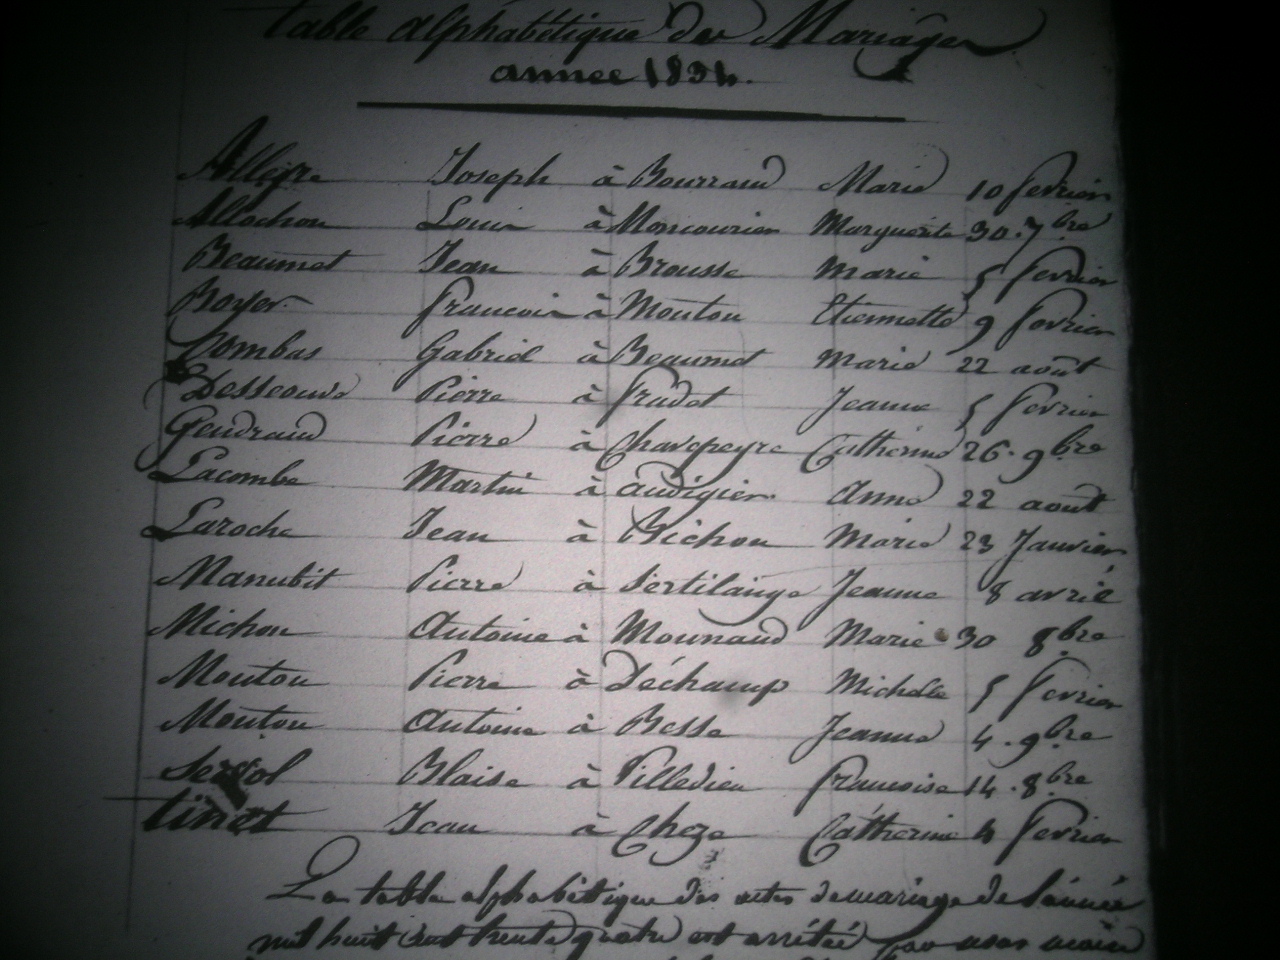 table alphabétique des Mariages
année 1834.
Allègre Joseph à Bourraud Marie 10 fevrier
Allochon Louis à Moncourier Marguerite 30. 7bre
Beaumet Jean à Brousse Marie 5 fevrier
Boyer francois à Mouton Etiennette 9 fevrier
Combas Gabriel à Beaumet Marie 22 août
Pierre à fradet Jeanne 5 fevrier
Gendraud Pierre à Chavepeyre Catherine 26. 9bre
Lacombe Martin à audigier Anne 22 août
Laroche Jean à Bichon Marie 23 Janvier
Manubit Pierre à Sertilange Jeanne 8 avril
Michon Antoine à Mounaud Marie 30 8bre
Mouton Pierre à Déchamp Michelle 5 fevrier
Mouton Antoine à Besse Jeanne 4. 9bre
Blaise à Villedieu francoise 14. 8bre
tinet Jean à Cheze Catherine 4 fevrier
La table alphabétique des actes de mariage de l'année
mil huit cent trente quatre est arrêtée par nous maire